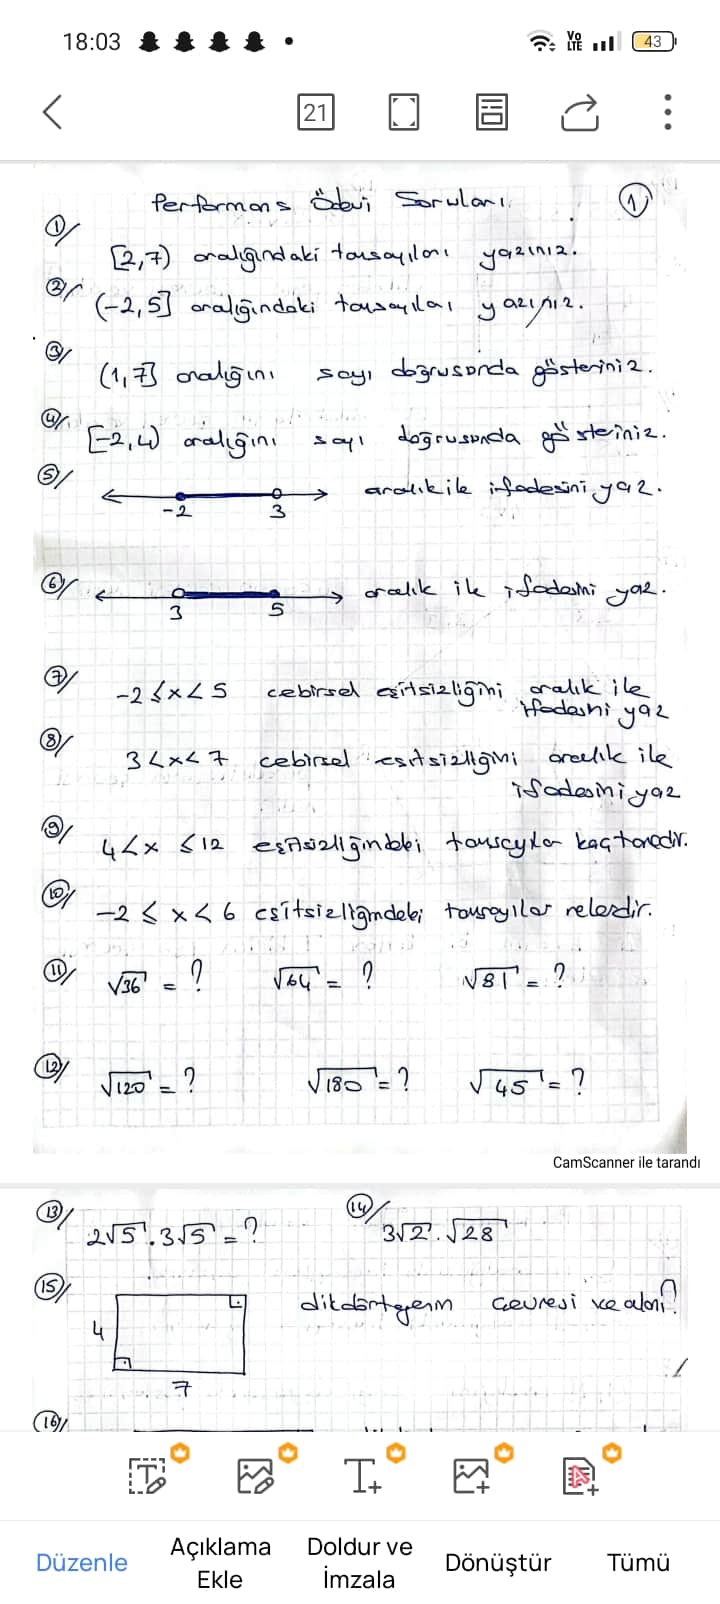 18:03
VO LTE
43
21
Performans Ödevi Soruları
1
1) [2,7) aralığındaki tamsayıları yazınız.
2) (-2,5] aralığındaki tamsayıları yazınız.
3) (1,7] aralığını sayı doğrusunda gösteriniz.
4) [-2,4) aralığını sayı doğrusunda gösteriniz.
5) aralık ile ifadesini yaz.
-2 3
6) aralık ile ifadesini yaz.
3 5
7) -2 ≤ x < 5 cebirsel eşitsizliğini aralık ile
ifadesini yaz
8) 3 < x < 7 cebirsel eşitsizliğini aralık ile
ifadesini yaz
9) 4 < x ≤ 12 eşitsizliğindeki tamsayılar kaç tanedir.
10) -2 ≤ x < 6 eşitsizliğindeki tamsayılar nelerdir.
11) √36 = ? √64 = ? √81 = ?
12) √120 = ? √180 = ? √45 = ?
CamScanner ile tarandı
13) 2√5 . 3√5 = ? 14) 3√2 . √28
15) dikdörtgenin çevresi ve alanı?
4
7
16)
Düzenle
Açıklama Ekle
Doldur ve İmzala
Dönüştür
Tümü